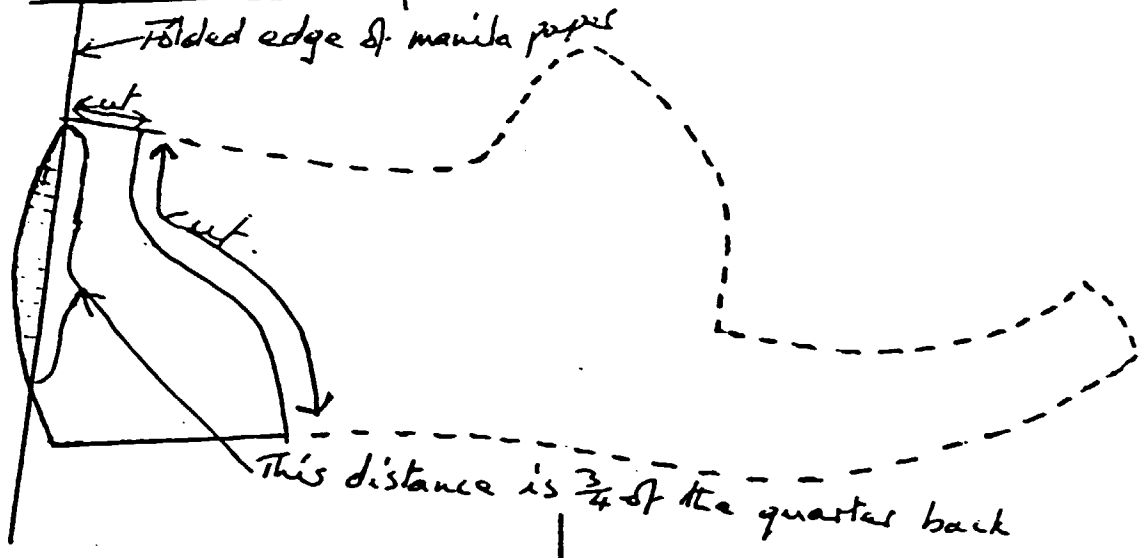 Folded edge of manila paper
cut
cut.
This distance is 3/4 of the quarter back